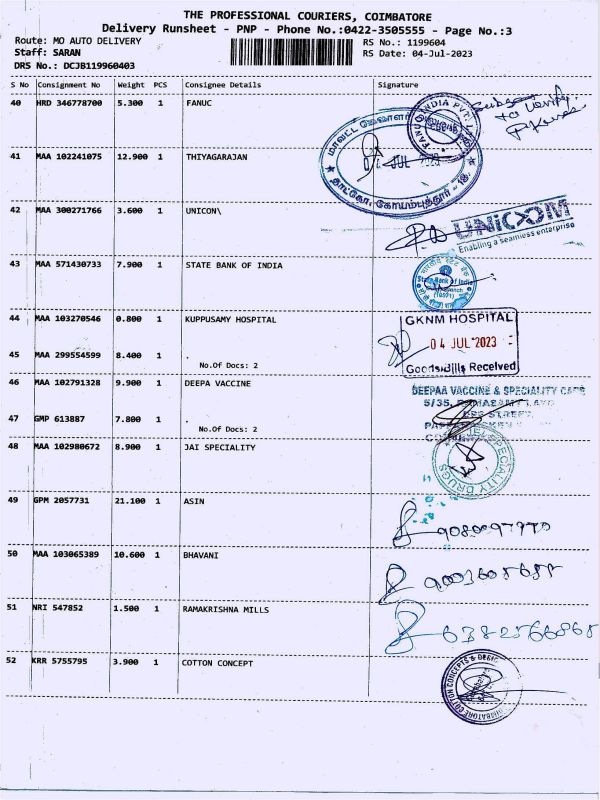 THE PROFESSIONAL COURIERS, COIMBATORE
Delivery Runsheet - PNP - Phone No.:0422-3505555 - Page No.:3
Route: MO AUTO DELIVERY
RS No.: 1199604
Staff: SARAN
RS Date: 04-Jul-2023
DRS No.: DCJB119960403
S No Consignment No Weight PCS Consignee Details Signature
40 HRD 346778700 5.300 1 FANUC
FANUC INDIA PVT.
41 MAA 102241075 12.900 1 THIYAGARAJAN
மாவட்ட மேலாளர்
JUL 2023
தாட்கோ, கோயம்புத்தூர் - 18.
42 MAA 300271766 3.600 1 UNICON\
UNICOM
Enabling a seamless enterprise
43 MAA 571430733 7.900 1 STATE BANK OF INDIA
State Bank of India
44 MAA 103270546 0.800 1 KUPPUSAMY HOSPITAL
GKNM HOSPITAL
04 JUL 2023
Goods/Bills Received
45 MAA 299554599 8.400 1 .
No.Of Docs: 2
46 MAA 102791328 9.900 1 DEEPA VACCINE
DEEPAA VACCINE & SPECIALITY CARE
5/35, RAMASAMY
STREET,
47 GMP 613887 7.800 1 .
No.Of Docs: 2
48 MAA 102980672 8.900 1 JAI SPECIALITY
JAI SPECIALITY DRUGS
49 GPM 2057731 21.100 1 ASIN
50 MAA 103065389 10.600 1 BHAVANI
51 NRI 547852 1.500 1 RAMAKRISHNA MILLS
52 KRR 5755795 3.900 1 COTTON CONCEPT
COTTON CONCEPTS & DESIGN
COIMBATORE